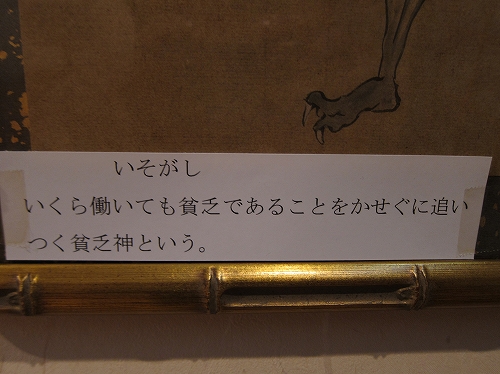 いそがし
いくら働いても貧乏であることをかせぐに追い
つく貧乏神という。